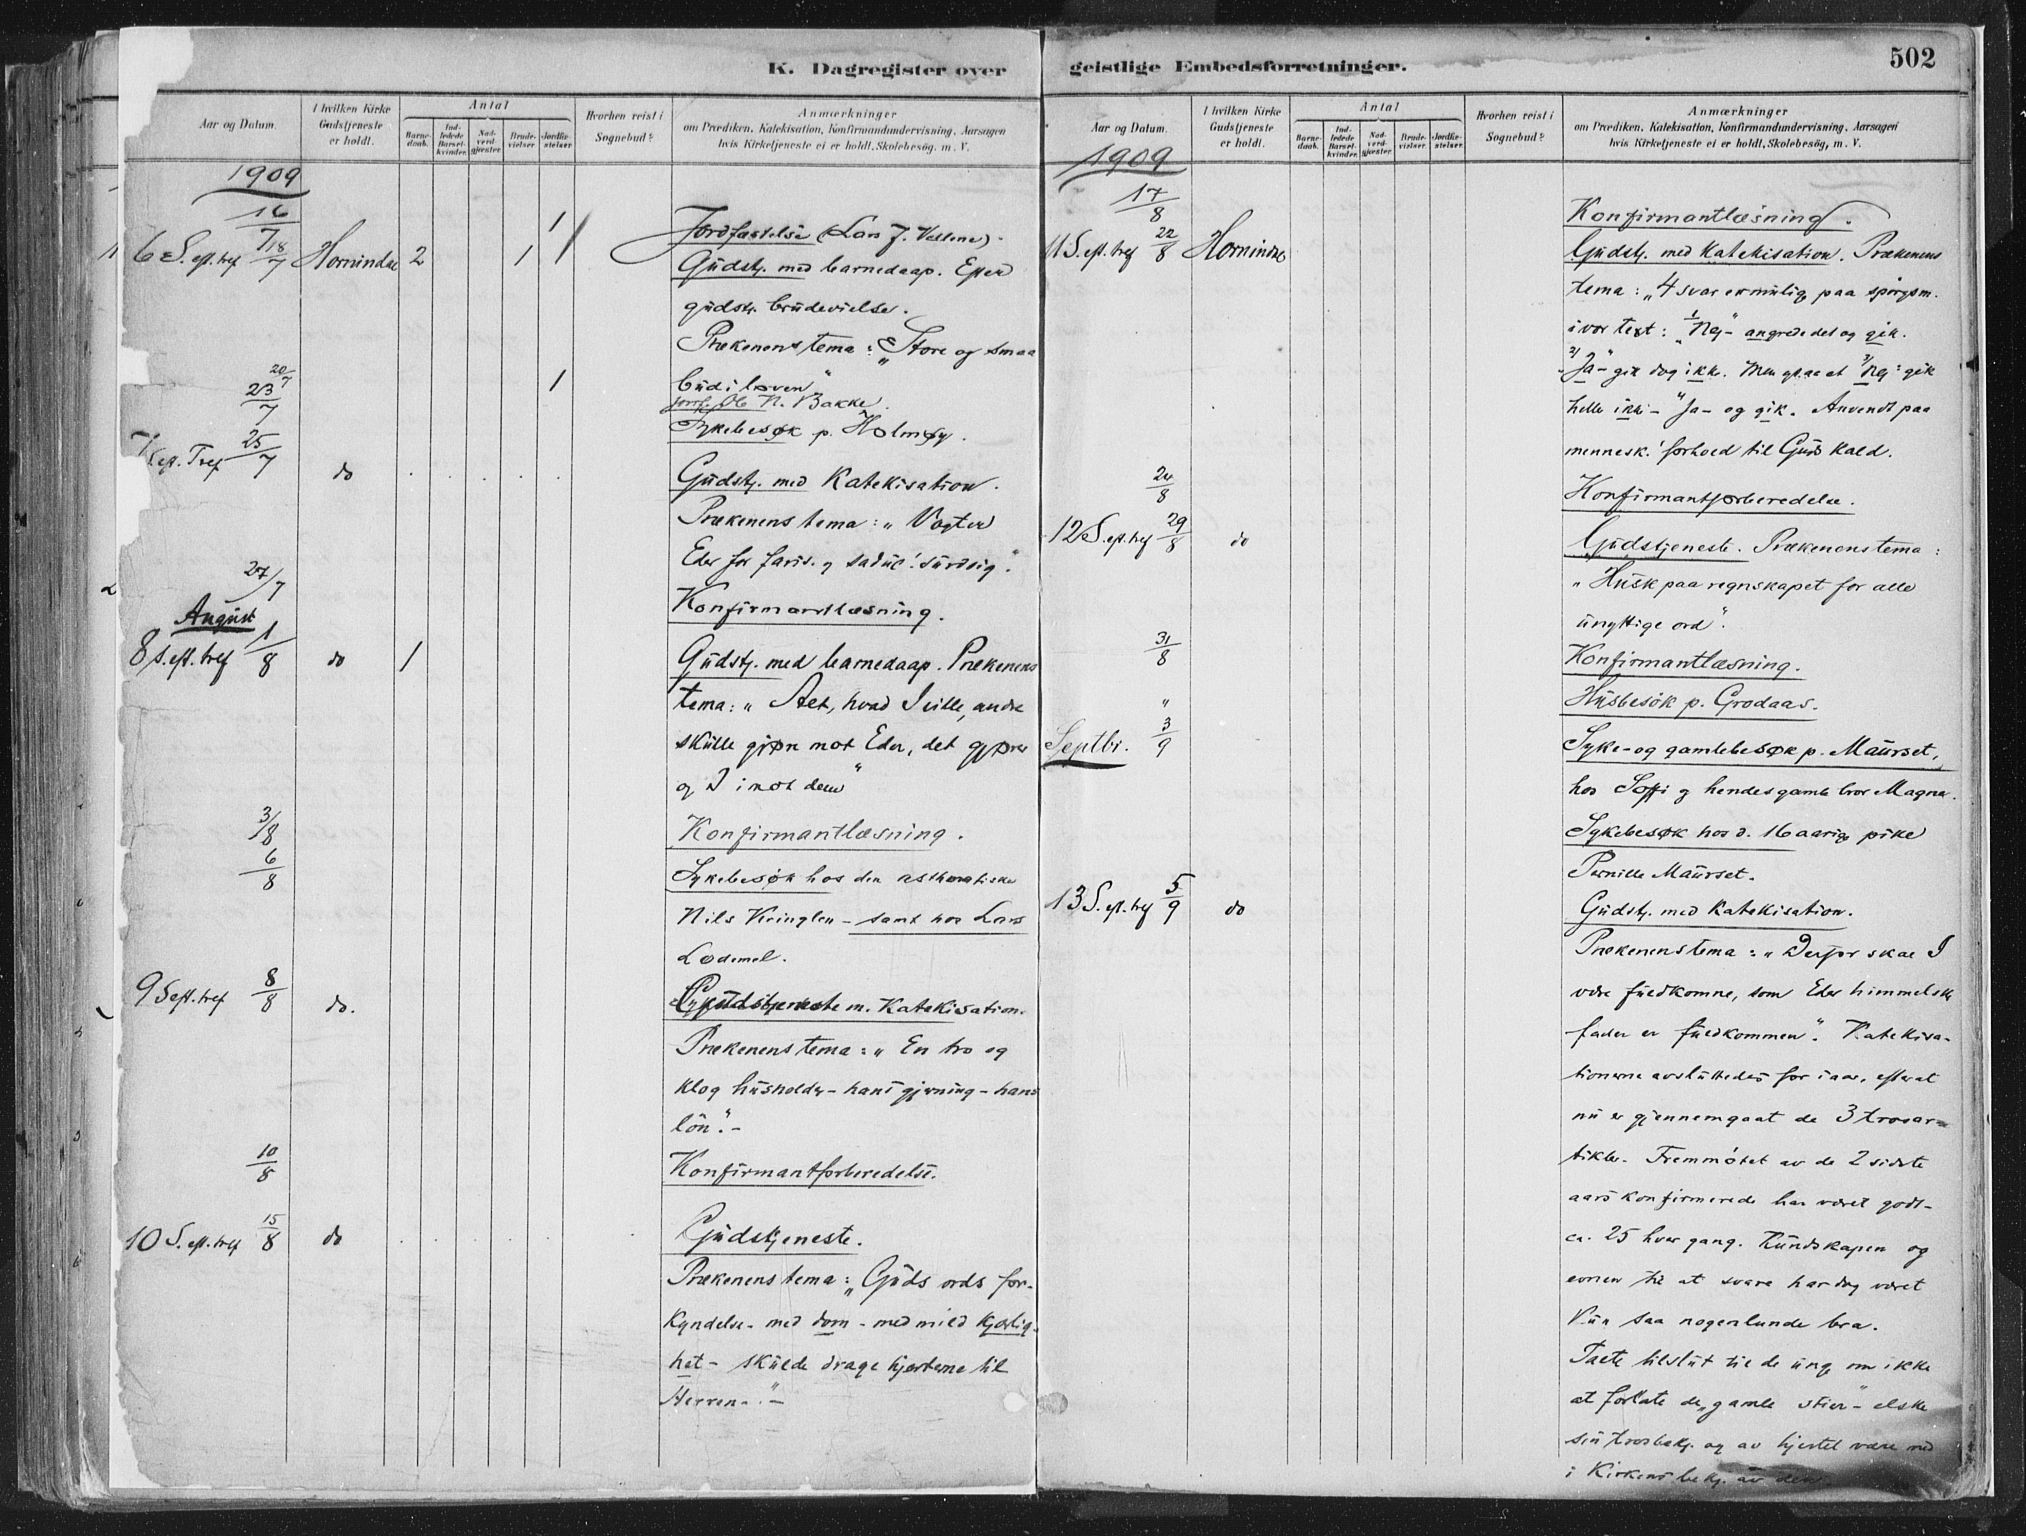 K. Dagregister over
Aar og Datum.
I hvilken Kirke Gudstjeneste er holdt.
Antal
Barne-daab.
Ind-ledede Barsel-kvinder.
Nad-verd-gjæster.
Brude-vielser.
Jordfæ-stelser.
Hvorhen reist i Sognebud?
Anmærkninger
om Prædiken, Katekisation, Konfirmandundervisning, Aarsagen
hvis Kirketjeneste ei er holdt, Skolebesög, m. V.
1909
16/7 1 Jordfastelse (Lars J. Vellene).
6 S. eft. tref 18/7 Hornindal 2 1 Gudstj. med barnedaap. Efter
gudstj. brudevielse.
Prækenens tema: „Store og smaa
bud i loven“
20/7 1 Jordf. Ole N. Bakke.
23/7 Sykebesøk p. Holmøy.
7 S. eft. Tref 25/7 do Gudstj. med Katekisation.
Prækenens tema: „Vogter
Eder for faris. og saduc. surdeig“.
27/7 Konfirmantlæsning.
August
8 S. eft. tref 1/8 do 1 Gudstj. med barnedaap. Prækenens
tema: „Alt, hvad I ville, andre
skulle gjøre mot Eder, det gjører
og I imot dem“
3/8 Konfirmantlæsning.
6/8 Sykebesøk hos den asthmatiske
Nils Kringlen – samt hos Lars
Lødemel.
9 S eft. tref 8/8 do. Gudstjeneste m. Katekisation.
Prækenens tema: „En tro og
klog husholder – hans gjerning – hans
løn“. –
10/8 Konfirmantforberedelse.
10 S. eft. tref 15/8 do Gudstjeneste.
Prækenens tema: „Guds ords for-
kyndelse – med dom – med mild kjærlig-
het – skulde drage hjerterne til
Herren –“. –
geistlige Embedsforretninger.
502
Aar og Datum.
I hvilken Kirke Gudstjeneste er holdt.
Antal
Barne-daab.
Ind-ledede Barsel-kvinder.
Nad-verd-gjæster.
Brude-vielser.
Jordfæ-stelser.
Hvorhen reist i Sognebud?
Anmærkninger
om Prædiken, Katekisation, Konfirmandundervisning, Aarsagen
hvis Kirketjeneste ei er holdt, Skolebesög, m. V.
1909
17/8 Konfirmantlæsning.
11 S. eft. tref 22/8 Hornindal Gudstj. med Katekisation. Prækenens
tema: „4 svar er mulig paa spørgsm.
i vor text: 1/ „Nej“ – angrede det og gik.
2/ „Ja“ – gik dog ikke. Men ogsaa et 3/ „Nej“: gik
heller ikke – „Ja“ – og gik. Anvendt paa
mennesk. forhold til Guds kald.
24/8 Konfirmantforberedelse.
12 S. eft. tref 29/8 do Gudstjeneste. Prækenens tema:
„Husk paa regnskapet for alle
unyttige ord“.
31/8 Konfirmantlæsning.
" Husbesøk p. Grodaas.
Septbr. 3/9 Syke- og gamlebesøk p. Maurset,
hos Soffi og hendes gamle bror Magne.
Sykebesøk hos d. 16 aarige pike
Pernille Maurset.
13 S. eft. tref 5/9 do Gudstj. med Katekisation.
Prækenens tema: „Derfor skal I
være fuldkomne, som Eder himmelske
fader er fuldkommen“. Katekisa-
tionerne avsluttedes for iaar, efterat
nu er gjennemgaat de 3 trosar-
tikler. Fremmøtet av de 2 sidste
aars konfirmerede har været godt –
ca. 25 hver gang. Kundskapen og
evnen til at svare har dog været
kun saa nogenlunde bra.
Talte tilslut til de unge om ikke
at forlate de „gamle stier“ – elske
sin trosbekj. og av hjertet være med
i Kirkens bekj. av den